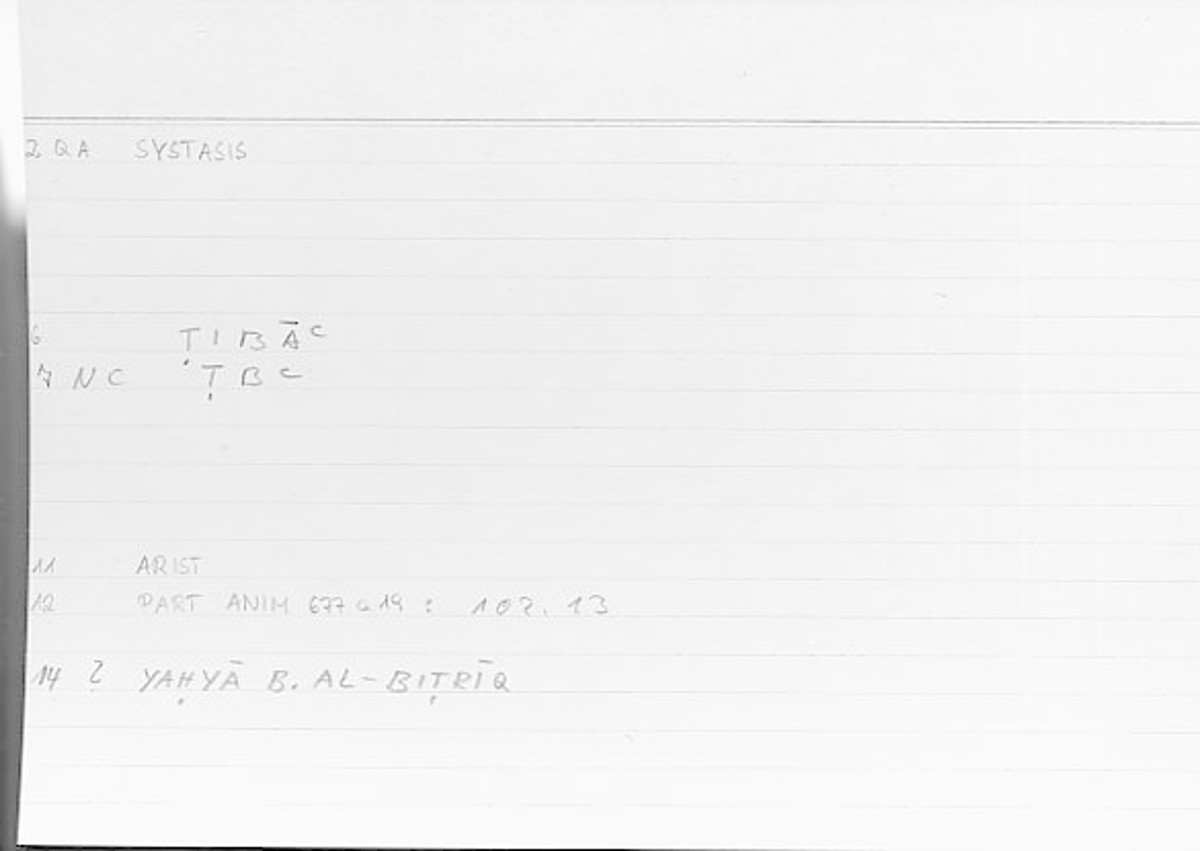 2 QA SYSTASIS
6 ṬIBĀC
7 NC ṬBC
11 ARIST
12 PART ANIM 677a19: 102.13
14 2 YAḤYĀ B. AL-BIṬRĪQ